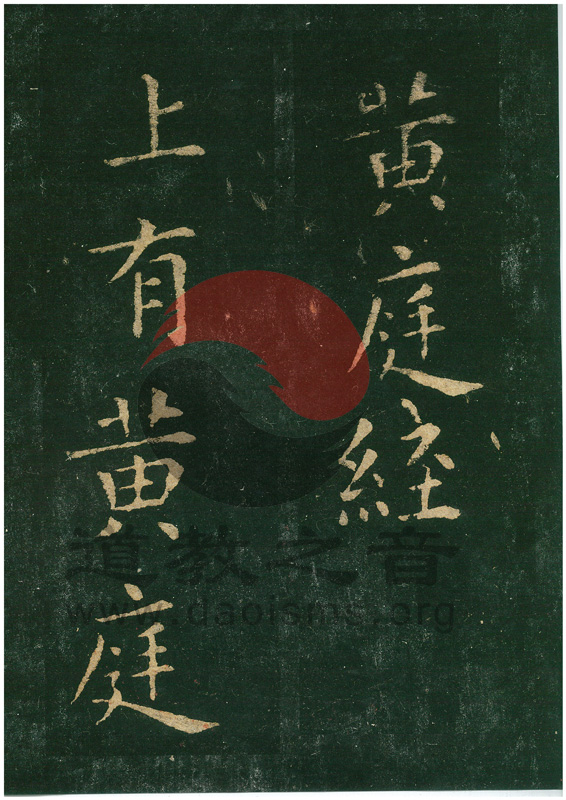 黃庭經
上有黃庭
道教之音
www.daoisms.org